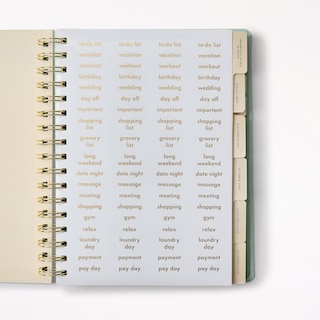 to do list to do list to do list to do list
vacation vacation vacation vacation
workout workout workout workout
birthday birthday birthday birthday
wedding wedding wedding wedding
day off day off day off day off
important important important important
shopping shopping shopping shopping
list list list list
grocery grocery grocery grocery
list list list list
long long long long
weekend weekend weekend weekend
date night date night date night date night
massage massage massage massage
meeting meeting meeting meeting
shopping shopping shopping shopping
gym gym gym gym
relax relax relax relax
laundry laundry laundry laundry
day day day day
payment payment payment payment
pay day pay day pay day pay day